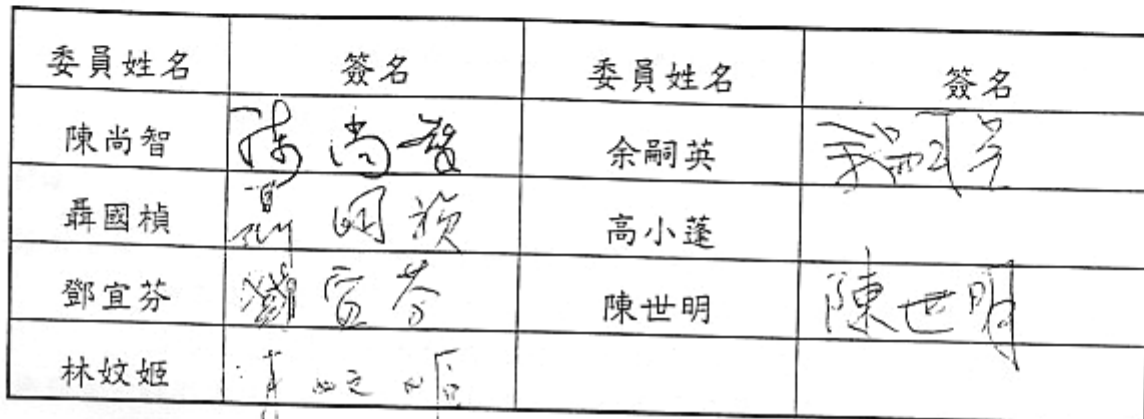 委員姓名 簽名 委員姓名 簽名
陳尚智 陳尚智 余嗣英 余嗣英
聶國楨 聶國楨 高小蓬
鄧宜芬 鄧宜芬 陳世明 陳世明
林妏姬